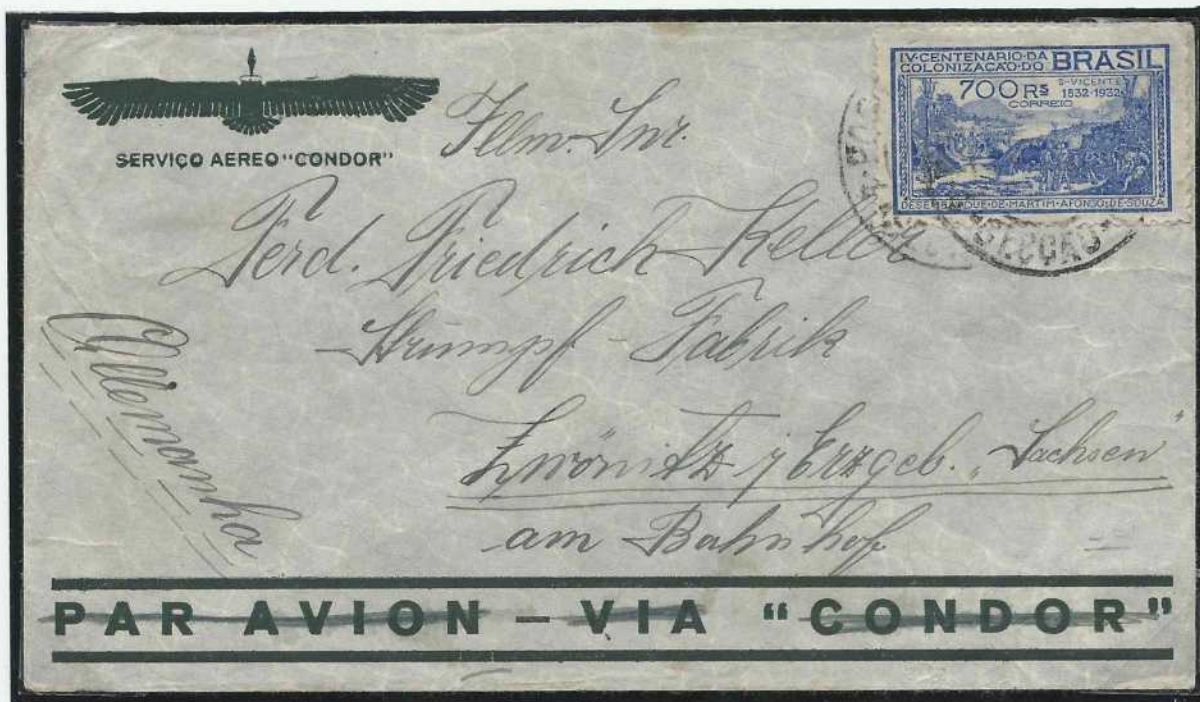 SERVIÇO AEREO "CONDOR"
IV·CENTENARIO·DA
COLONIZAÇAO·DO BRASIL
700RS S·VICENTE
1532·1932
CORREIO
DESEMBARQUE·DE·MARTIM·AFONSO·DE·SOUZA
SECCÃO
Illm. Snr.
Ferd. Friedrich Keller
Strumpf-Fabrik
Zwönitz i/ Erzgeb. „Sachsen"
am Bahnhof
Allemanha
PAR AVION – VIA "CONDOR"